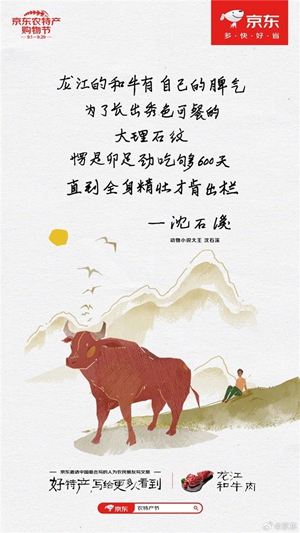 京东农特产
购物节
9.1—9.29
京东
多·快·好·省
龙江的和牛有自己的脾气
为了长出秀色可餐的
大理石纹
愣是卯足劲吃够600天
直到全身精壮才肯出栏
—沈石溪
动物小说大王 沈石溪
京东邀请中国最会写的人为农民朋友写文案
好特产,写给更多人看到
龙江
和牛肉
京东
农特产节
@京东